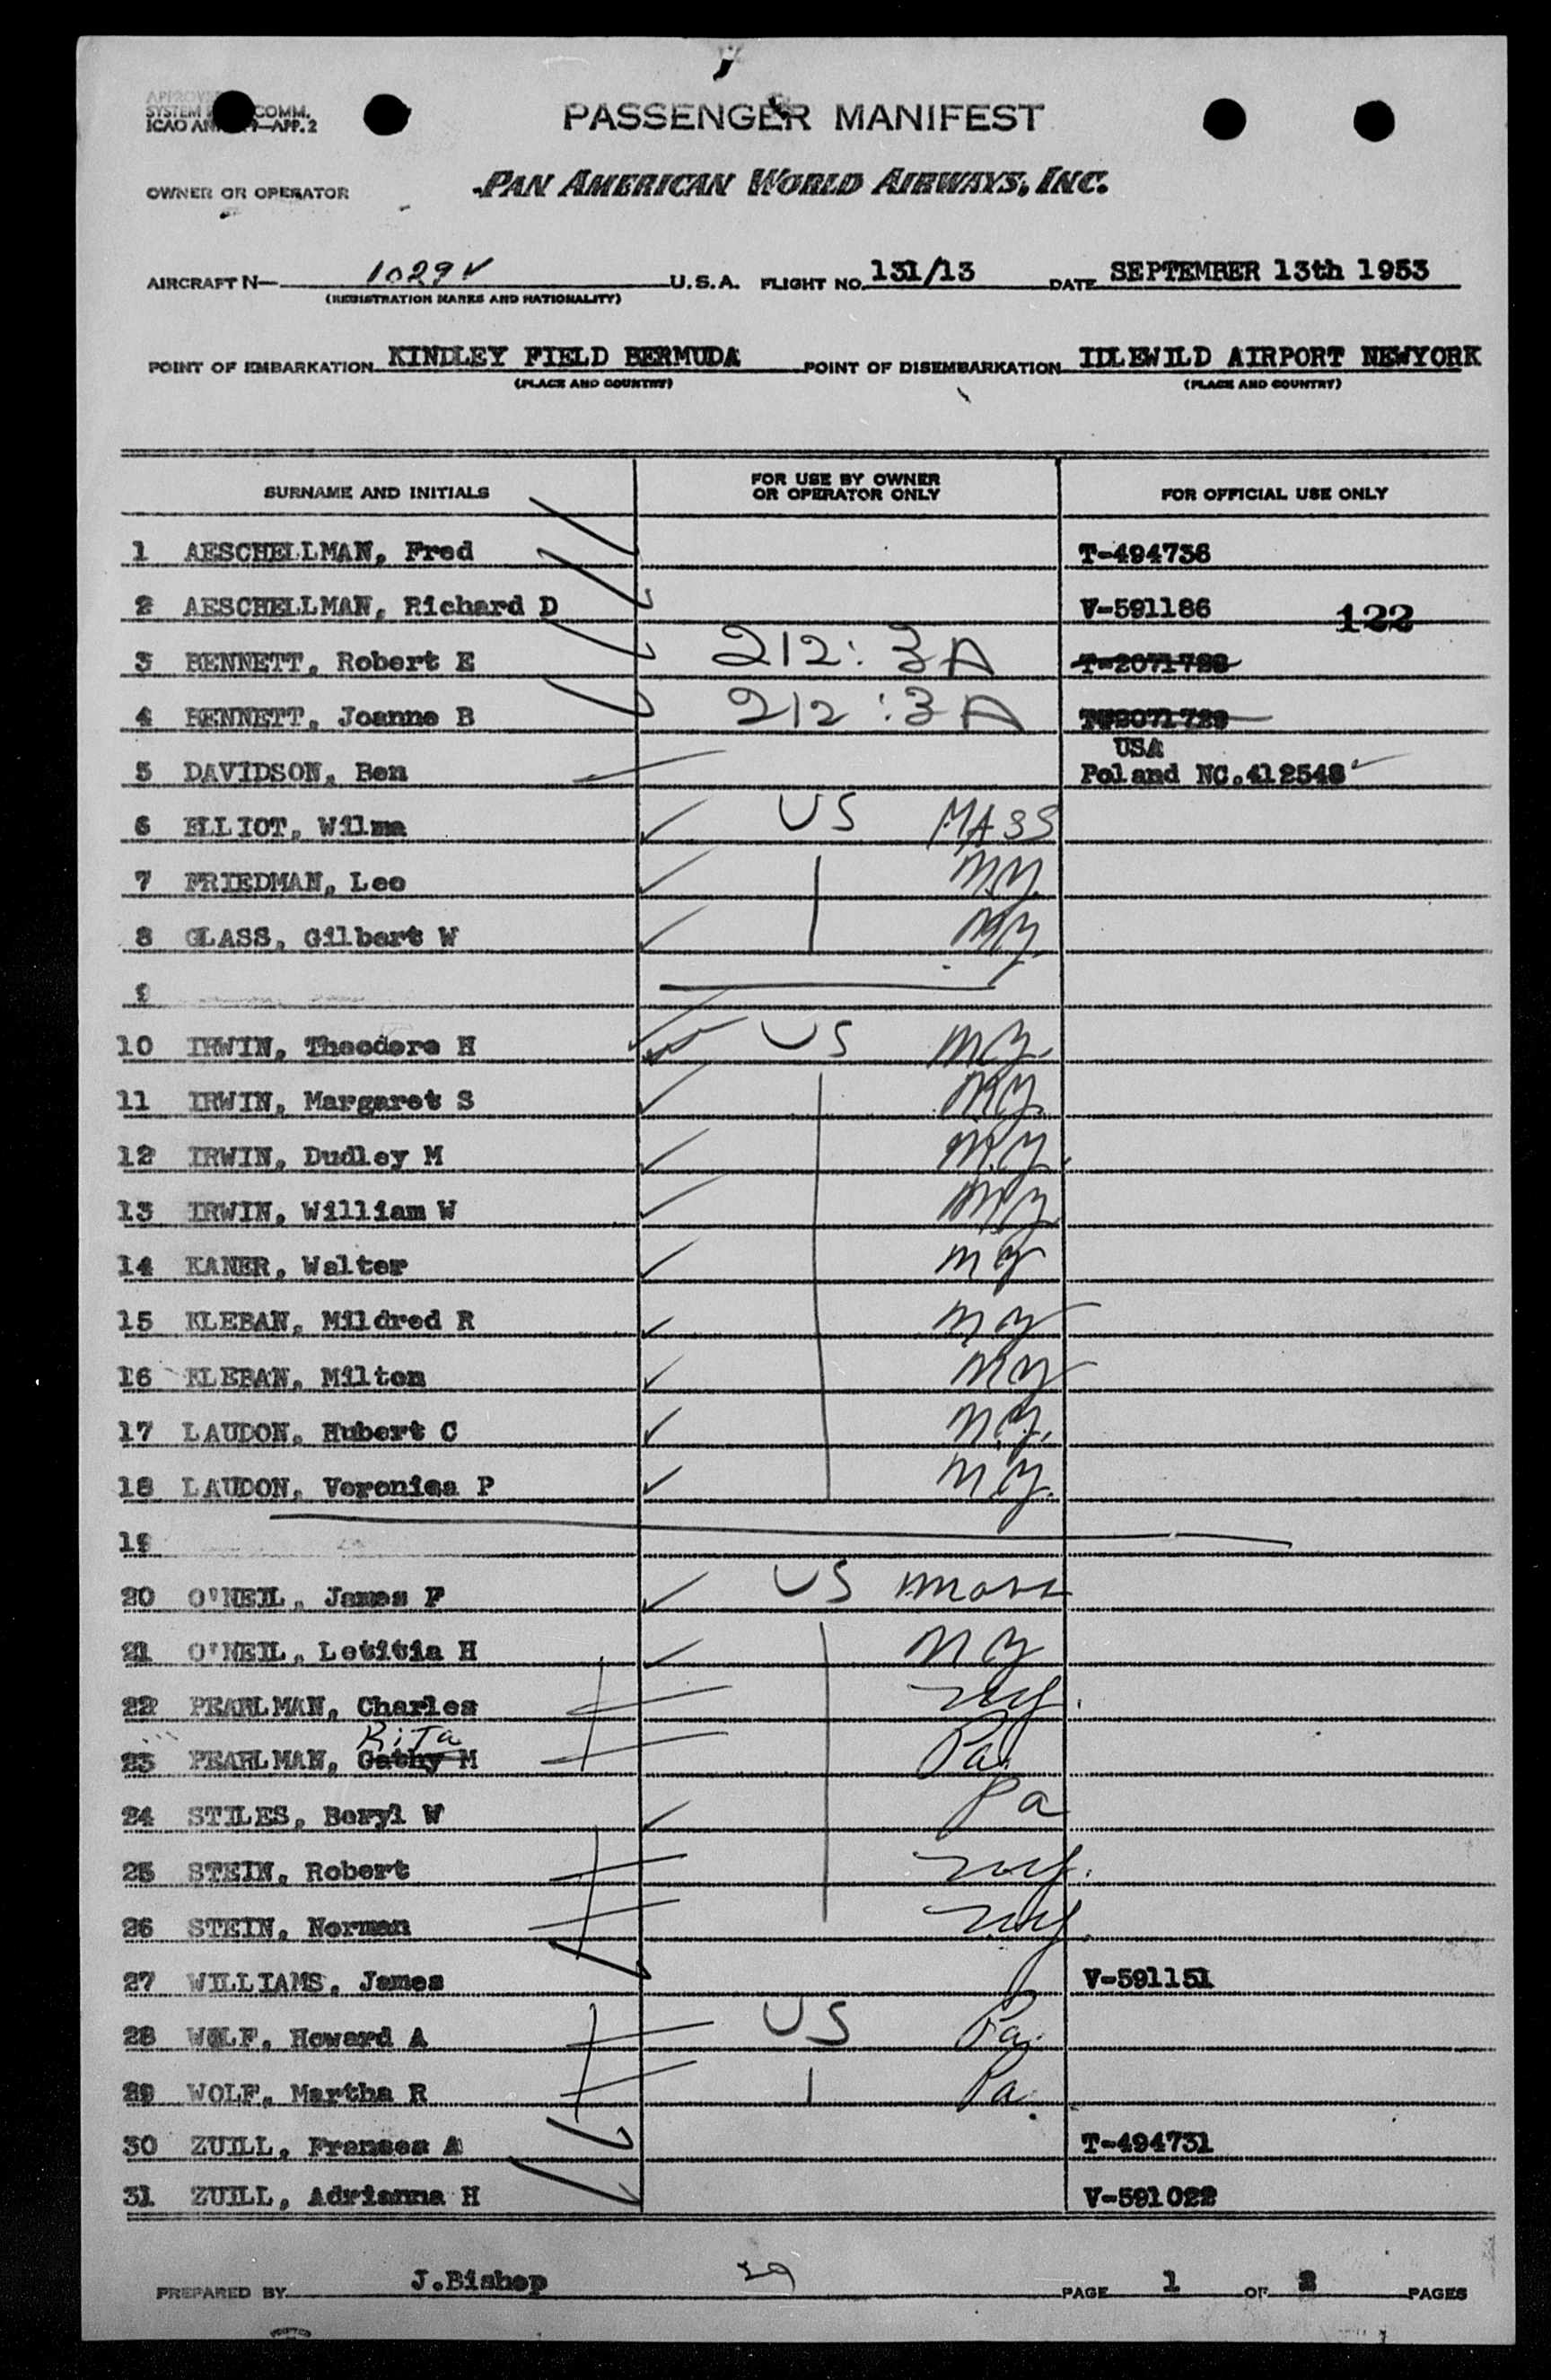 SYSTEM COMM.
ICAO APP. 2
PASSENGER MANIFEST
OWNER OR OPERATOR PAN AMERICAN WORLD AIRWAYS, INC.
AIRCRAFT N— 1029V U.S.A. FLIGHT NO. 131/13 DATE SEPTEMBER 13th 1953
(REGISTRATION MARKS AND NATIONALITY)
POINT OF EMBARKATION KINDLEY FIELD BERMUDA POINT OF DISEMBARKATION IDLEWILD AIRPORT NEWYORK
(PLACE AND COUNTRY) (PLACE AND COUNTRY)
SURNAME AND INITIALS FOR USE BY OWNER OR OPERATOR ONLY FOR OFFICIAL USE ONLY
1 AESCHELLMAN, Fred T-494736
2 AESCHELLMAN, Richard D V-591186 122
3 BENNETT, Robert E 212:3A T-2071728
4 BENNETT, Joanne B 212:3A 2071729
USA
5 DAVIDSON, Ben Poland NC.412548
6 ELLIOT, Wilma US MASS
7 FRIEDMAN, Leo N.Y.
8 GLASS, Gilbert W NY
9
10 IRWIN, Theodore H US NY.
11 IRWIN, Margaret S NY.
12 IRWIN, Dudley M N.Y.
13 IRWIN, William W NY
14 KANER, Walter NY
15 KLEBAN, Mildred R NY
16 KLEBAN, Milton NY
17 LAUDON, Hubert C N.Y.
18 LAUDON, Veronica P N.Y.
19
20 O'NEIL, James F US Mass
21 O'NEIL, Letitia H NY
22 PEARLMAN, Charles NY.
Rita
23 PEARLMAN, Cathy M Pa.
24 STILES, Beryl W Pa
25 STEIN, Robert NY.
26 STEIN, Norman NY.
27 WILLIAMS, James V-591151
28 WOLF, Howard A US Pa.
29 WOLF, Martha R Pa.
30 ZUILL, Frances A T-494731
31 ZUILL, Adrianna H V-591022
PREPARED BY J.Bishop 29 PAGE 1 OF 2 PAGES